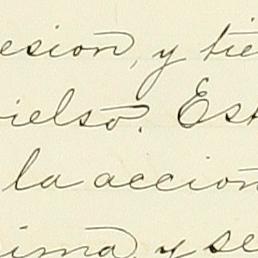 esion, y tie
ielso. Est
la accion
ima, y se